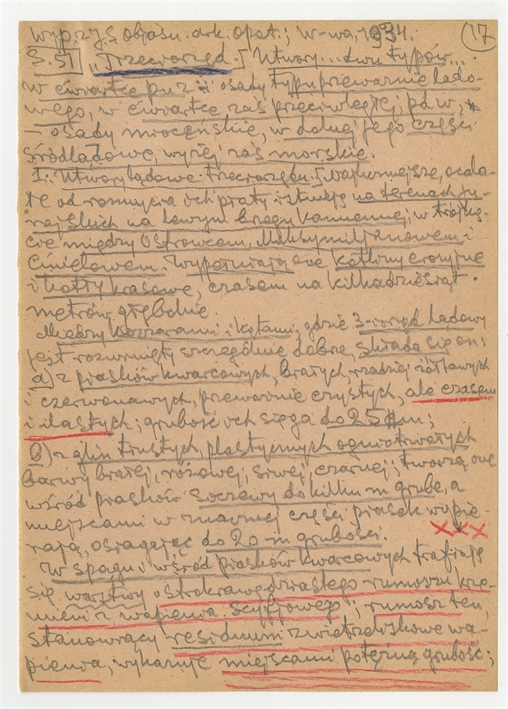 wypis z objaśn. ark. opat.; W-wa, 1934. 17
S. 51 "Trzeciorzęd. Utwory... dwu typów...
w ćwiartce osady typu przeważnie lądo-
wego, w ćwiartce zaś przeciwległej, pd w,
– osady mioceńskie, w dolnej jego części
śródlądowe, wyżej zaś morskie.
I. Utwory lądowe trzeciorzędu. Najliczniejsze, ocala-
łe od rozmycia ich płaty istnieją na terenach ju-
rajskich na lewym brzegu Kamiennej, w trójką-
cie między Ostrowcem, Maksymiljanowem i
Ćmielowem. Wypełniają one kotliny erozyjne
i kotły krasowe, czasem na kilkadziesiąt
metrów głębokie.
Między Kozzarami i Kątami, gdzie 3-rzęd lądowy
jest rozwinięty szczególnie dobrze, składa się on:
a) z piasków kwarcowych, białych, rzadziej żółtawych
i czerwonawych, przeważnie czystych, ale czasem
i ilastych; grubość ich sięga do 25 m;
b) z glin tłustych plastycznych ogniotrwałych
barwy białej, różowej, siwej, czarnej; tworzą one
wśród piasków soczewy do kilku m grube, a
miejscami w znacznej części piasek wypie-
rają, osiągając do 20 m grubości.
W spągu i wśród piasków kwarcowych trafiają
się warstwy ostrokrawędziastego rumoszu krze-
mieni z wapienia scyfjowego; rumosz ten,
stanowiący residuum zwietrzeliskowe wa-
pienia, wykazuje miejscami potężną grubość;